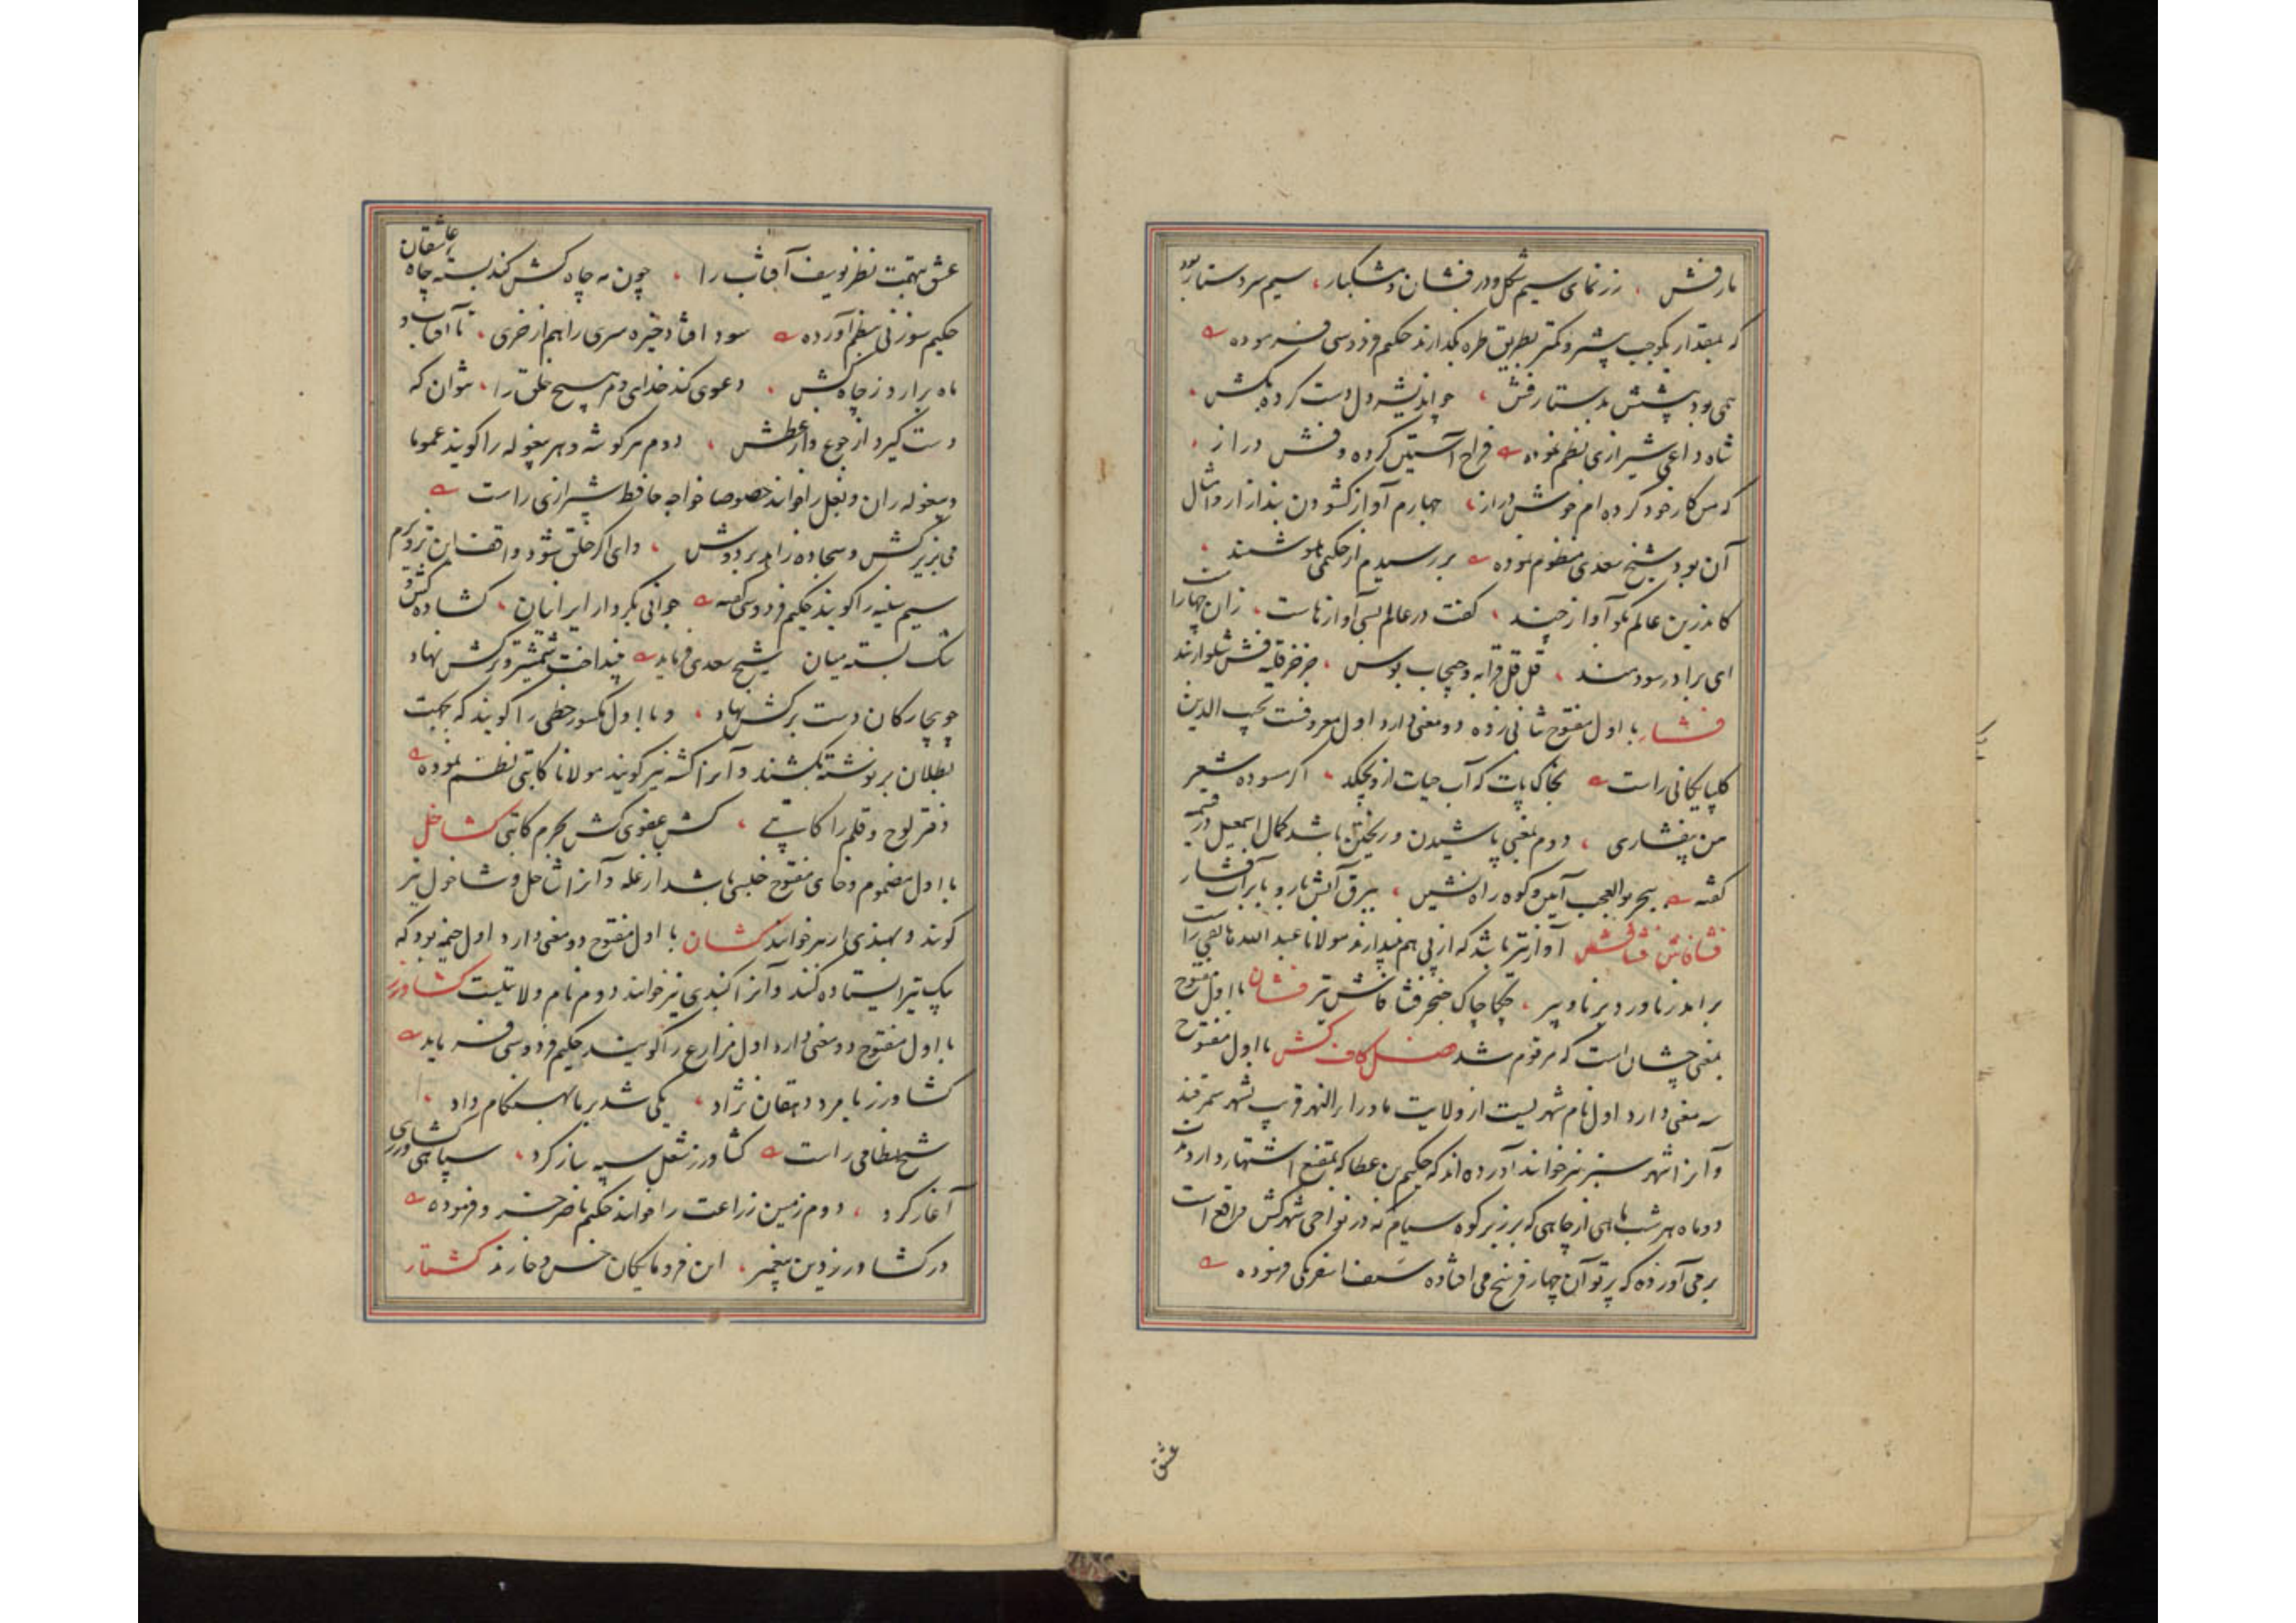 بار فش ، زرنمای سیم شکل و درفشان و مشکبار ، سیم سر دستار بود
که بمقدار یکوجب بیشتر و کمتر بطریق طره بگذارند حکیم فردوسی فرموده
همی بود پیشش بدستار فش ، جو اندیشه دل دست کرده بکش ،
شاه داعی شیرازی نظم نموده فراخ آستین کرده و فش دراز ،
که من کار خود کرده ام خوش دراز ، چهارم آواز کشودن بند ازار و امثال
آن بود شیخ سعدی منظوم نموده بررسیدم از حکیمی هوشمند ،
کاندرین عالم نکو آواز چند ، کفت در عالم بسی آوازهاست ، زان چهارا
ای برادر سودمند ، قل قل قرابه و چپچاب بوس ، جزجز قلیه فش شلواربند
فشار با اول مفتوح ثانی زده دو معنی دارد اول معروفست نجیب الدین
کلپایکانی راست بخاک پات که آب حیات ازو بچکد ، اکر مسوده شعر
من بیفشاری ، دوم بمعنی پاشیدن و ریختن باشد کمال اسمعیل در قسمیه
کفته ببحر بوالعجب آیین و کوه راه نشین ، ببرق آتش بار و بابر آب فشار
فشافاش فشافش آواز تیر باشد که از پی هم بیندازند مولانا عبد الله هاتفی راست
برامد ز ناورد برنا و پیر ، چکاچاک خنجر فشافاش تیر فشان با اول مفتوح
بمعنی چشان است که مرقوم شد فصل کاف کش با اول مفتوح
سه معنی دارد اول نام شهریست از ولایت ماوراء النهر قریب بشهر سمرقند
و آنرا شهر سبز نیز خوانند آورده اند که حکیم بن عطا که بمقنع اشتهار دارد مدت
دو ماه هر شب ماهی از چاهی که بر زیر کوه سیام که در نواحی شهر کش واقع است
برمی آورده که پرتو آن چهار فرسنخ می افتاده سیف اسفرنکی فرموده
عشق
عشق بتهمت نظر یوسف آفتاب را ، چون مه چاه کش کند بسته چاه عاشقان
حکیم سوزنی بنظم آورده سود افتاد خیره سری را بهم از خری ، تا آفتاب و
ماه برارد ز چاه کش ، دعوی کند خدای دم مسیح خلق را ، نتوان که
دست کیرد از جوع و از عطش ، دوم هر کوشه و هر پیغوله را کویند عموما
و پیغوله ران و بغل را خوانند خصوصا خواجه حافظ شیرازی راست
می بزیر کش و سجاده زاهد بر دوش ، وای اکر خلق شود واقف این تزویرم
سیم سینه را کویند حکیم فردوسی کفته جوانی بکردار ایرانیان ، کشاده کش و
تنک بسته میان شیخ سعدی فرماید بینداخت شمشیر و ترکش نهاد
چو بیچارکان دست بر کش نهاد ، و با اول مکسور خطی را کویند که بجهت
بطلان بر نوشته بکشند و آنرا کشه نیز کویند مولانا کاتبی نظم نموده
دفتر لوح و قلم را کاتبی ، کش عفوی کش بجرم کاتبی کشاخل
با اول مضموم و خای مفتوح جنسی باشد از غله و آنرا شاخل و شاخول نیز
کویند و بهندی ارهر خوانند کشان با اول مفتوح دو معنی دارد اول خیمه بود که
بیک تیر ایستاده کنند و آنرا کنبدی نیز خوانند دوم نام ولایتیست کشاورز
با اول مفتوح دو معنی دارد اول مزارع را کویند حکیم فردوسی فرماید
کشاورز یا مرد دهقان نژاد ، یکی شد بر ما بهنکام داد ،
شیخ نظامی راست کشاورز شغل سپه باز کرد ، سپاهی کشاورزی
آغاز کرد ، دوم زمین زراعت را خوانند حکیم ناصر خسرو فرموده
در کشاورز دین پیغمبر ، این فرومایکان خس و خارند کشتار